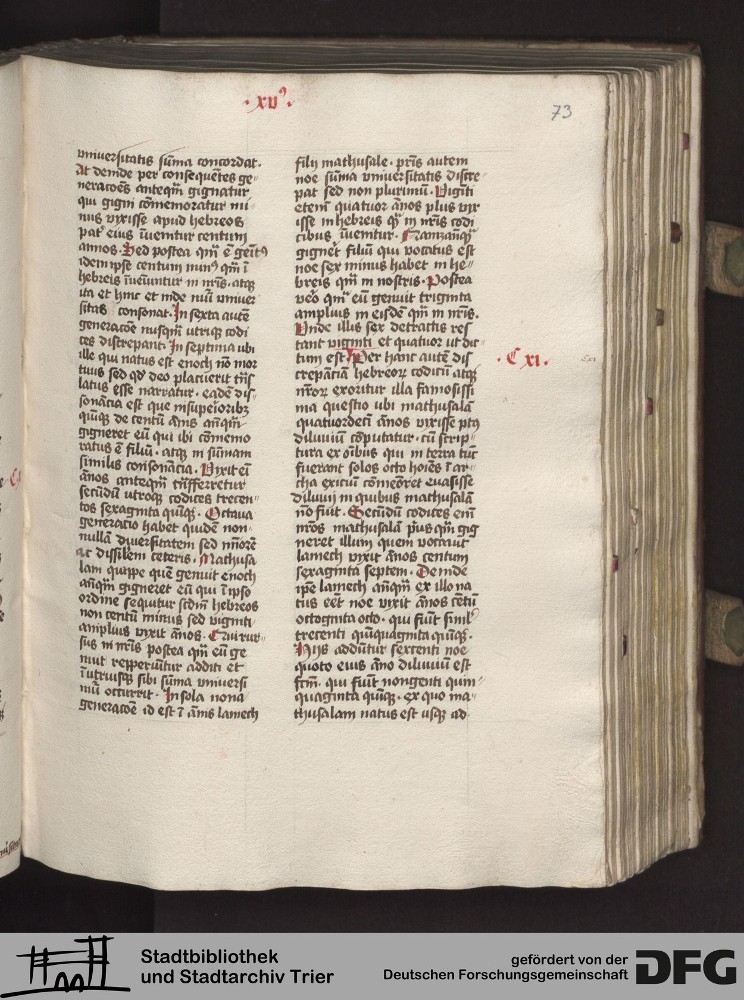 ·xv⁹·
73
vniuersitatis sūma concordat·
At deinde per consequētes ge
neracōes anteqm̄ gignatur
qui gigni cōmemoratur mi
nus vixisse apud hebreos
pat̓ eius īuenitur centum
annos· Sed postea qm̄ ē genit⁹
idem ipse centum min⁹ qm̄ ī
hebreis īueniuntur in nr̄is· atqꝫ
ita et hinc et inde nūi vniuer
sitas consonat· In sexta autē
generacōe nusqm̄ utriqꝫ codi
ces discrepant· In septima ubi
ille qui natus est enoch nō mor
tuus sed qd̓ deo placuerit tn̄s
latus esse narratur· eadē dis
sonācia est que insuperioribꝫ
quīqꝫ de centū ānis an̄qm̄
gigneret eū qui ibi cōmemo
ratus ē filiū· atqꝫ in sūmam
similis consonācia· Vixit eī
ānos anteqm̄ trn̄sferretur
secūdū utrosqꝫ codices trecen
tos sexaginta quīqꝫ· Octaua
generacio habet quidē non
nullā diuersitatem sed minorē
ac dissilem ceteris· Mathusa
lam quippe quē genuit enoch
an̄qm̄ gigneret eū qui ī ipso
ordine sequitur scdm̄ hebreos
non centū minus sed viginti
amplius vixit ānos· Qui rur
sus in nr̄is postea qm̄ eū ge
nuit repperiūtur additi et
ī utrisqꝫ sibi sūma vniuersi
nūi occurrit· In sola nona
generacōe id est ī ānis lamech
filij mathusale· pr̄is autem
noe sūma vniuersitatis discre
pat sed non plurimū· Viginti
etem̄ quatuor ānos plus vix
isse in hebreis qꝫ in nr̄is codi
cibus īuenitur· Nam an̄qꝫ
gigner̄t filiū qui vocatus est
noe sex minus habet in he
breis qm̄ in nostris· Postea
vero qm̄ eū genuit triginta
amplius in eisdē qm̄ in nr̄is·
Vnde illis sex detractis res
tant viginti et quatuor ut dic
tum est· Per hanc autē dis
crepāciā hebreoꝝ codicū atqꝫ
nr̄oꝝ exoritur illa famosissi
ma questio ubi mathusalā
quatuordecī ānos vixisse post
diluuiū cōputatur· cū scrip
tura ex oībus qui in terra tūc
fuerant solos octo hoīes ī ar
cha exiciū cōmeōret euasisse
diluuij in quibus mathusalā
nō fuit· Secūdū codices em̄
nr̄os mathusalā p̄us qm̄ gig
neret illum quem vocauit
lamech vixit ānos centum
sexaginta septem· Deinde
ipē lamech an̄qm̄ ex illo na
tus eēt noe vixit ānos cētū
octoginta octo· qui fiūt simul
trecenti quīquaginta quīqꝫ·
Hijs addūtur sexcenti noe
quoto eius āno diluuiū est
fcm̄· qui fiūt nongenti quin
quaginta quīqꝫ· ex quo ma
thusalam natus est usqꝫ ad
· C xi·
Stadtbibliothek
und Stadtarchiv Trier
gefördert von der
Deutschen Forschungsgemeinschaft
DFG